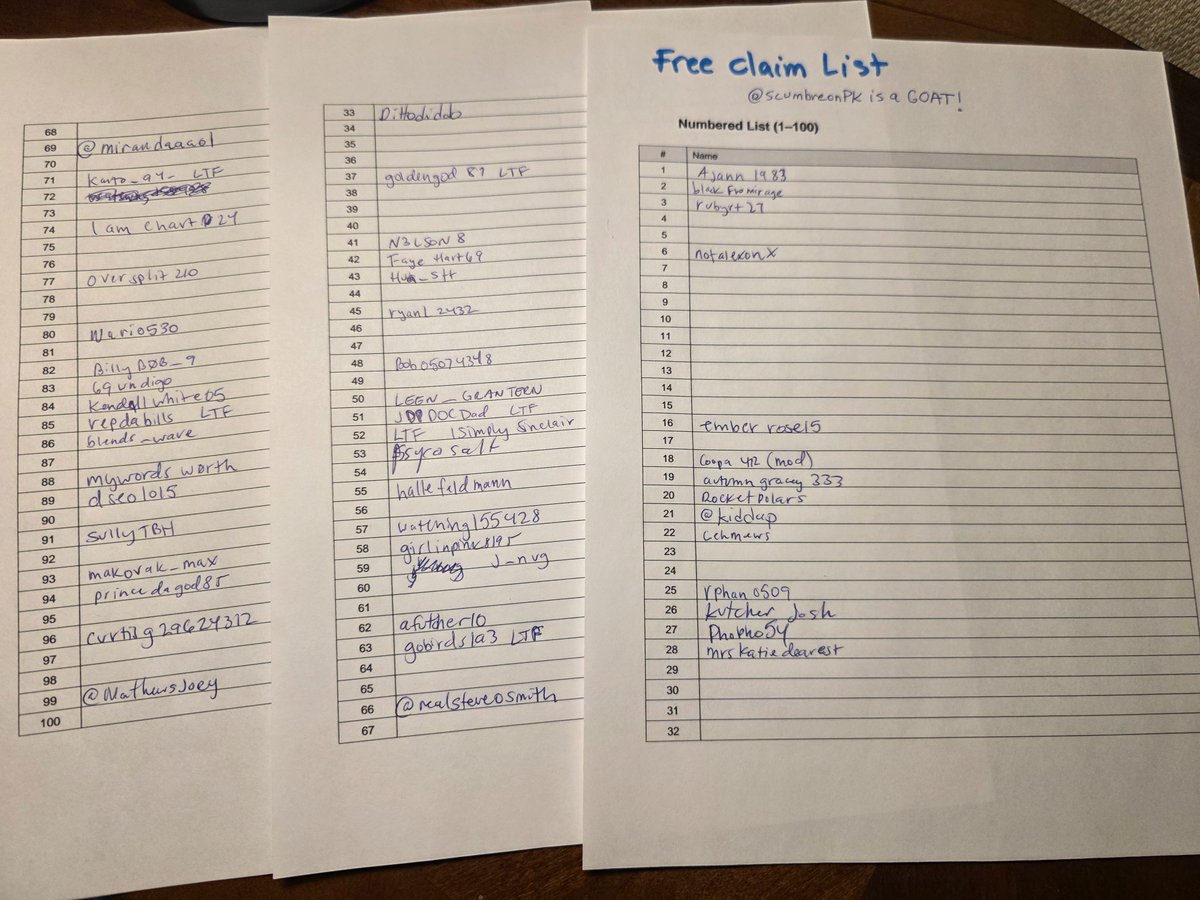 Free Claim List
@scumbreonPK is a GOAT!
Numbered List (1–100)
# Name
1 Ajann 1983
2 black fro mirage
3 rubyrt27
4
5
6 notalexonx
7
8
9
10
11
12
13
14
15
16 ember rose15
17
18 Coopa 412 (mod)
19 autumn gracey 333
20 Rocket Polars
21 @kiddap
22 cchmews
23
24
25 rphan0509
26 kutcher Josh
27 Phopho54
28 mrs katie dearest
29
30
31
32
33 Dittodiddo
34
35
36
37 goldengod 87 LTF
38
39
40
41 N3LSON 8
42 Faye Hart69
43
44
45 ryan12432
46
47
48 Bob05074348
49
50 LEEN_GRANTERN
51 DOCDad LTF
52 LTF 1Simply Sinclair
53 syrosalt
54
55 halle feldmann
56
57 watching155428
58 girlinpink8195
59 J_nvg
60
61
62 afuther10
63 gobirds1a3 LTF
64
65
66 @realsteveosmith
67
68
69 @mirandaaao1
70
71 Karto_94_ LTF
72
73
74 I am chart 24
75
76
77 Oversplit210
78
79
80 Wario530
81
82 Billy BØB_9
83 69undigo
84 Kendallwhite05
85 repdabills LTF
86 blends_wave
87
88 mywords worth
89 dseo1015
90
91 SullyTBH
92
93 makovak_max
94 princedagod85
95
96 curtisg29624312
97
98
99 @MathewsJoey
100